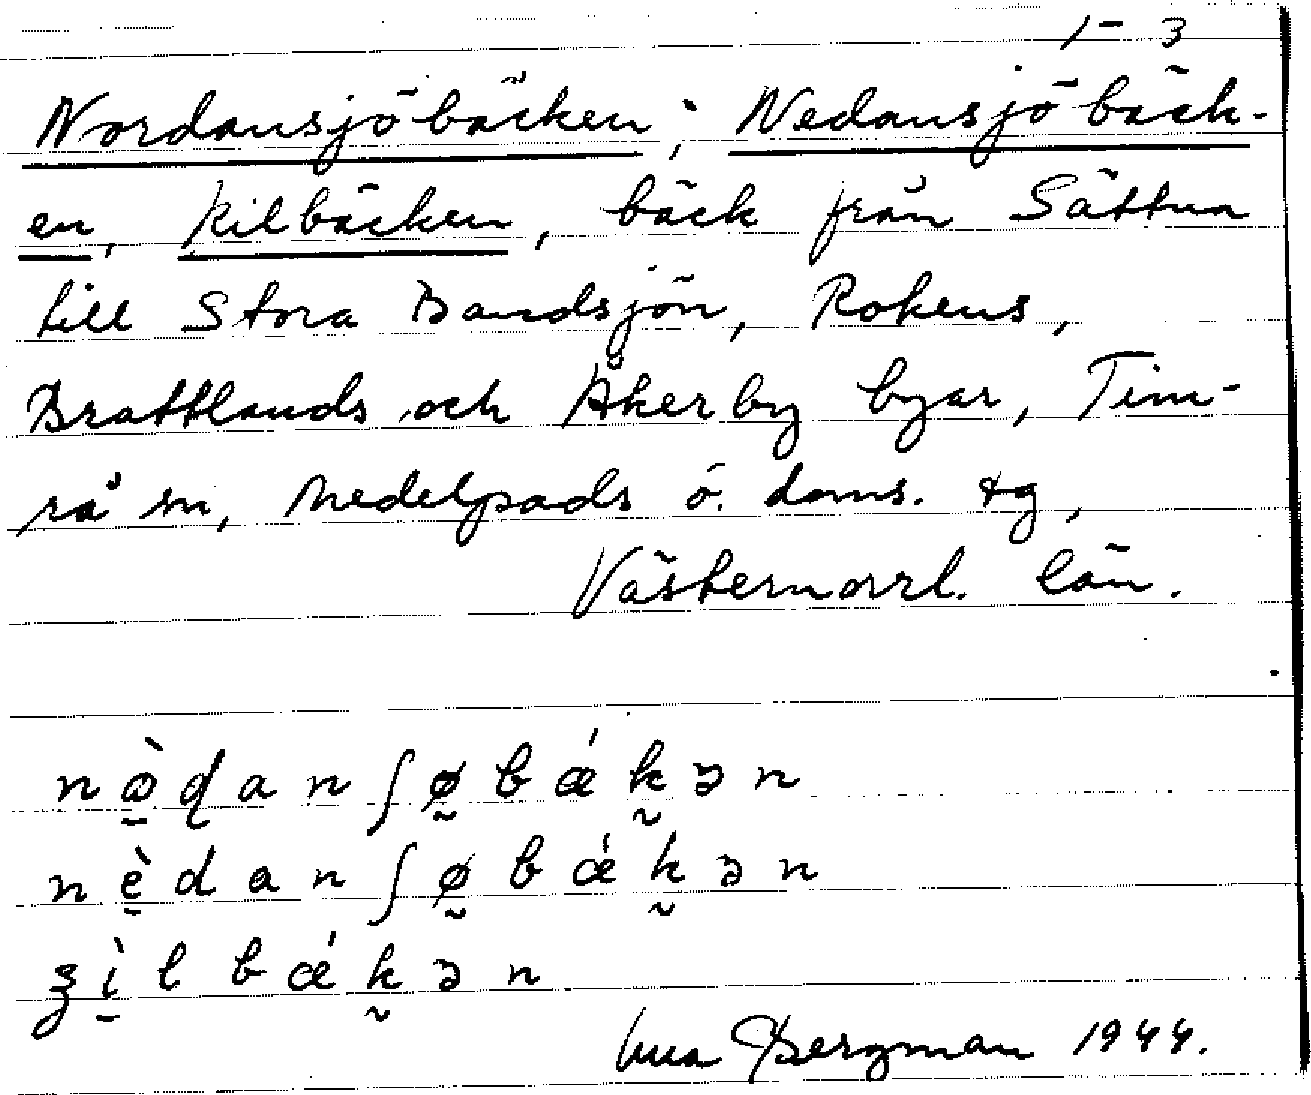 1-3
Nordansjöbäcken; Nedansjöbäck-
en, Kilbäcken, bäck från Sättna
till Stora Bandsjön, Rokens,
Brattlands och Åkerby byar, Tim-
rå sn, Medelpads ö. doms. tg,
Västernorrl. län.
nɷ̠̀ɖanʃø̰bǽk̰ən
nè̠danʃø̰bǽk̰ən
ʒì̠lbǽk̰ən
Bergman 1944.